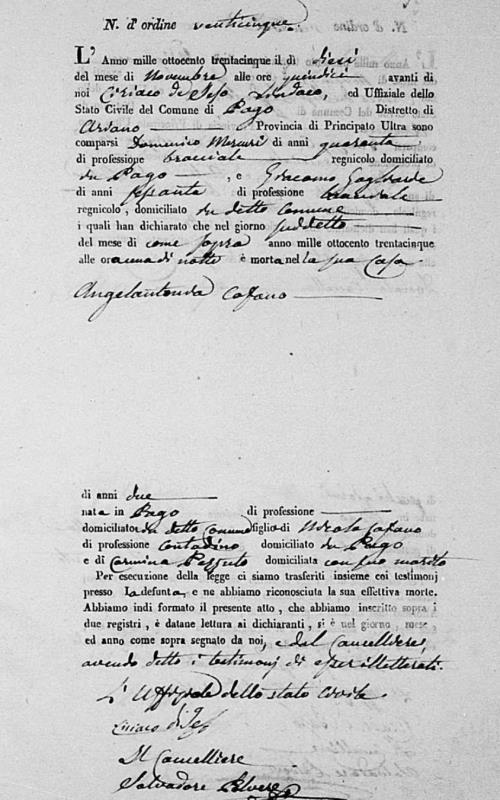 N. d' ordine venticinque.
L' Anno mille ottocento trentacinque il dì dieci
del mese di Novembre alle ore quindici avanti di
noi Ciriaco di Ieso Sindaco, ed Uffiziale dello
Stato Civile del Comune di Pago Distretto di
Ariano Provincia di Principato Ultra sono
comparsi Domenico Mercuri di anni quaranta
di professione bracciale regnicolo domiciliato
in Pago, e Giacomo Gagliarde
di anni sessanta di professione bracciale
regnicolo, domiciliato in detto Comune
i quali han dichiarato che nel giorno suddetto
del mese di come sopra anno mille ottocento trentacinque
alle ore una di notte è morta nella sua Casa
Angelantonia Cafano
di anni due
nata in Pago di professione
domiciliato in detto Comune figlia di Nicola Cafano
di professione Contadino domiciliato in Pago
e di Carmina Pezzuto domiciliata con suo marito
Per esecuzione della legge ci siamo trasferiti insieme coi testimonj
presso la defunta, e ne abbiamo riconosciuta la sua effettiva morte.
Abbiamo indi formato il presente atto, che abbiamo inscritto sopra i
due registri, è datane lettura ai dichiaranti, si è nel giorno, mese,
ed anno come sopra segnato da noi, e dal Cancelliere,
avendo detto i testimonj di esser illetterati.
L' Uffiziale dello stato Civile
Ciriaco di Ieso
Il Cancelliere
Salvadore Polvere